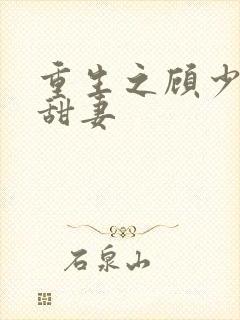 重生之顾少
甜妻
石泉山